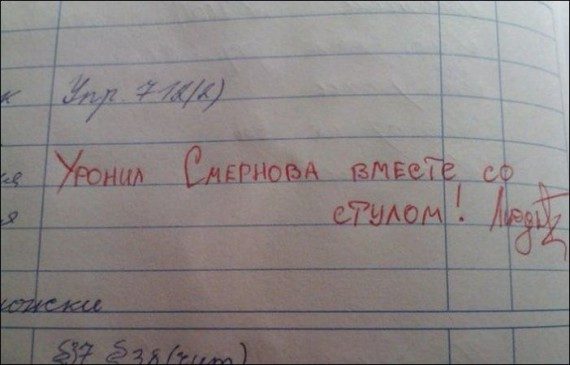 к Упр. 712(2)
Уронил Смернова вместе со
я стулом!
§37 §38(чит)